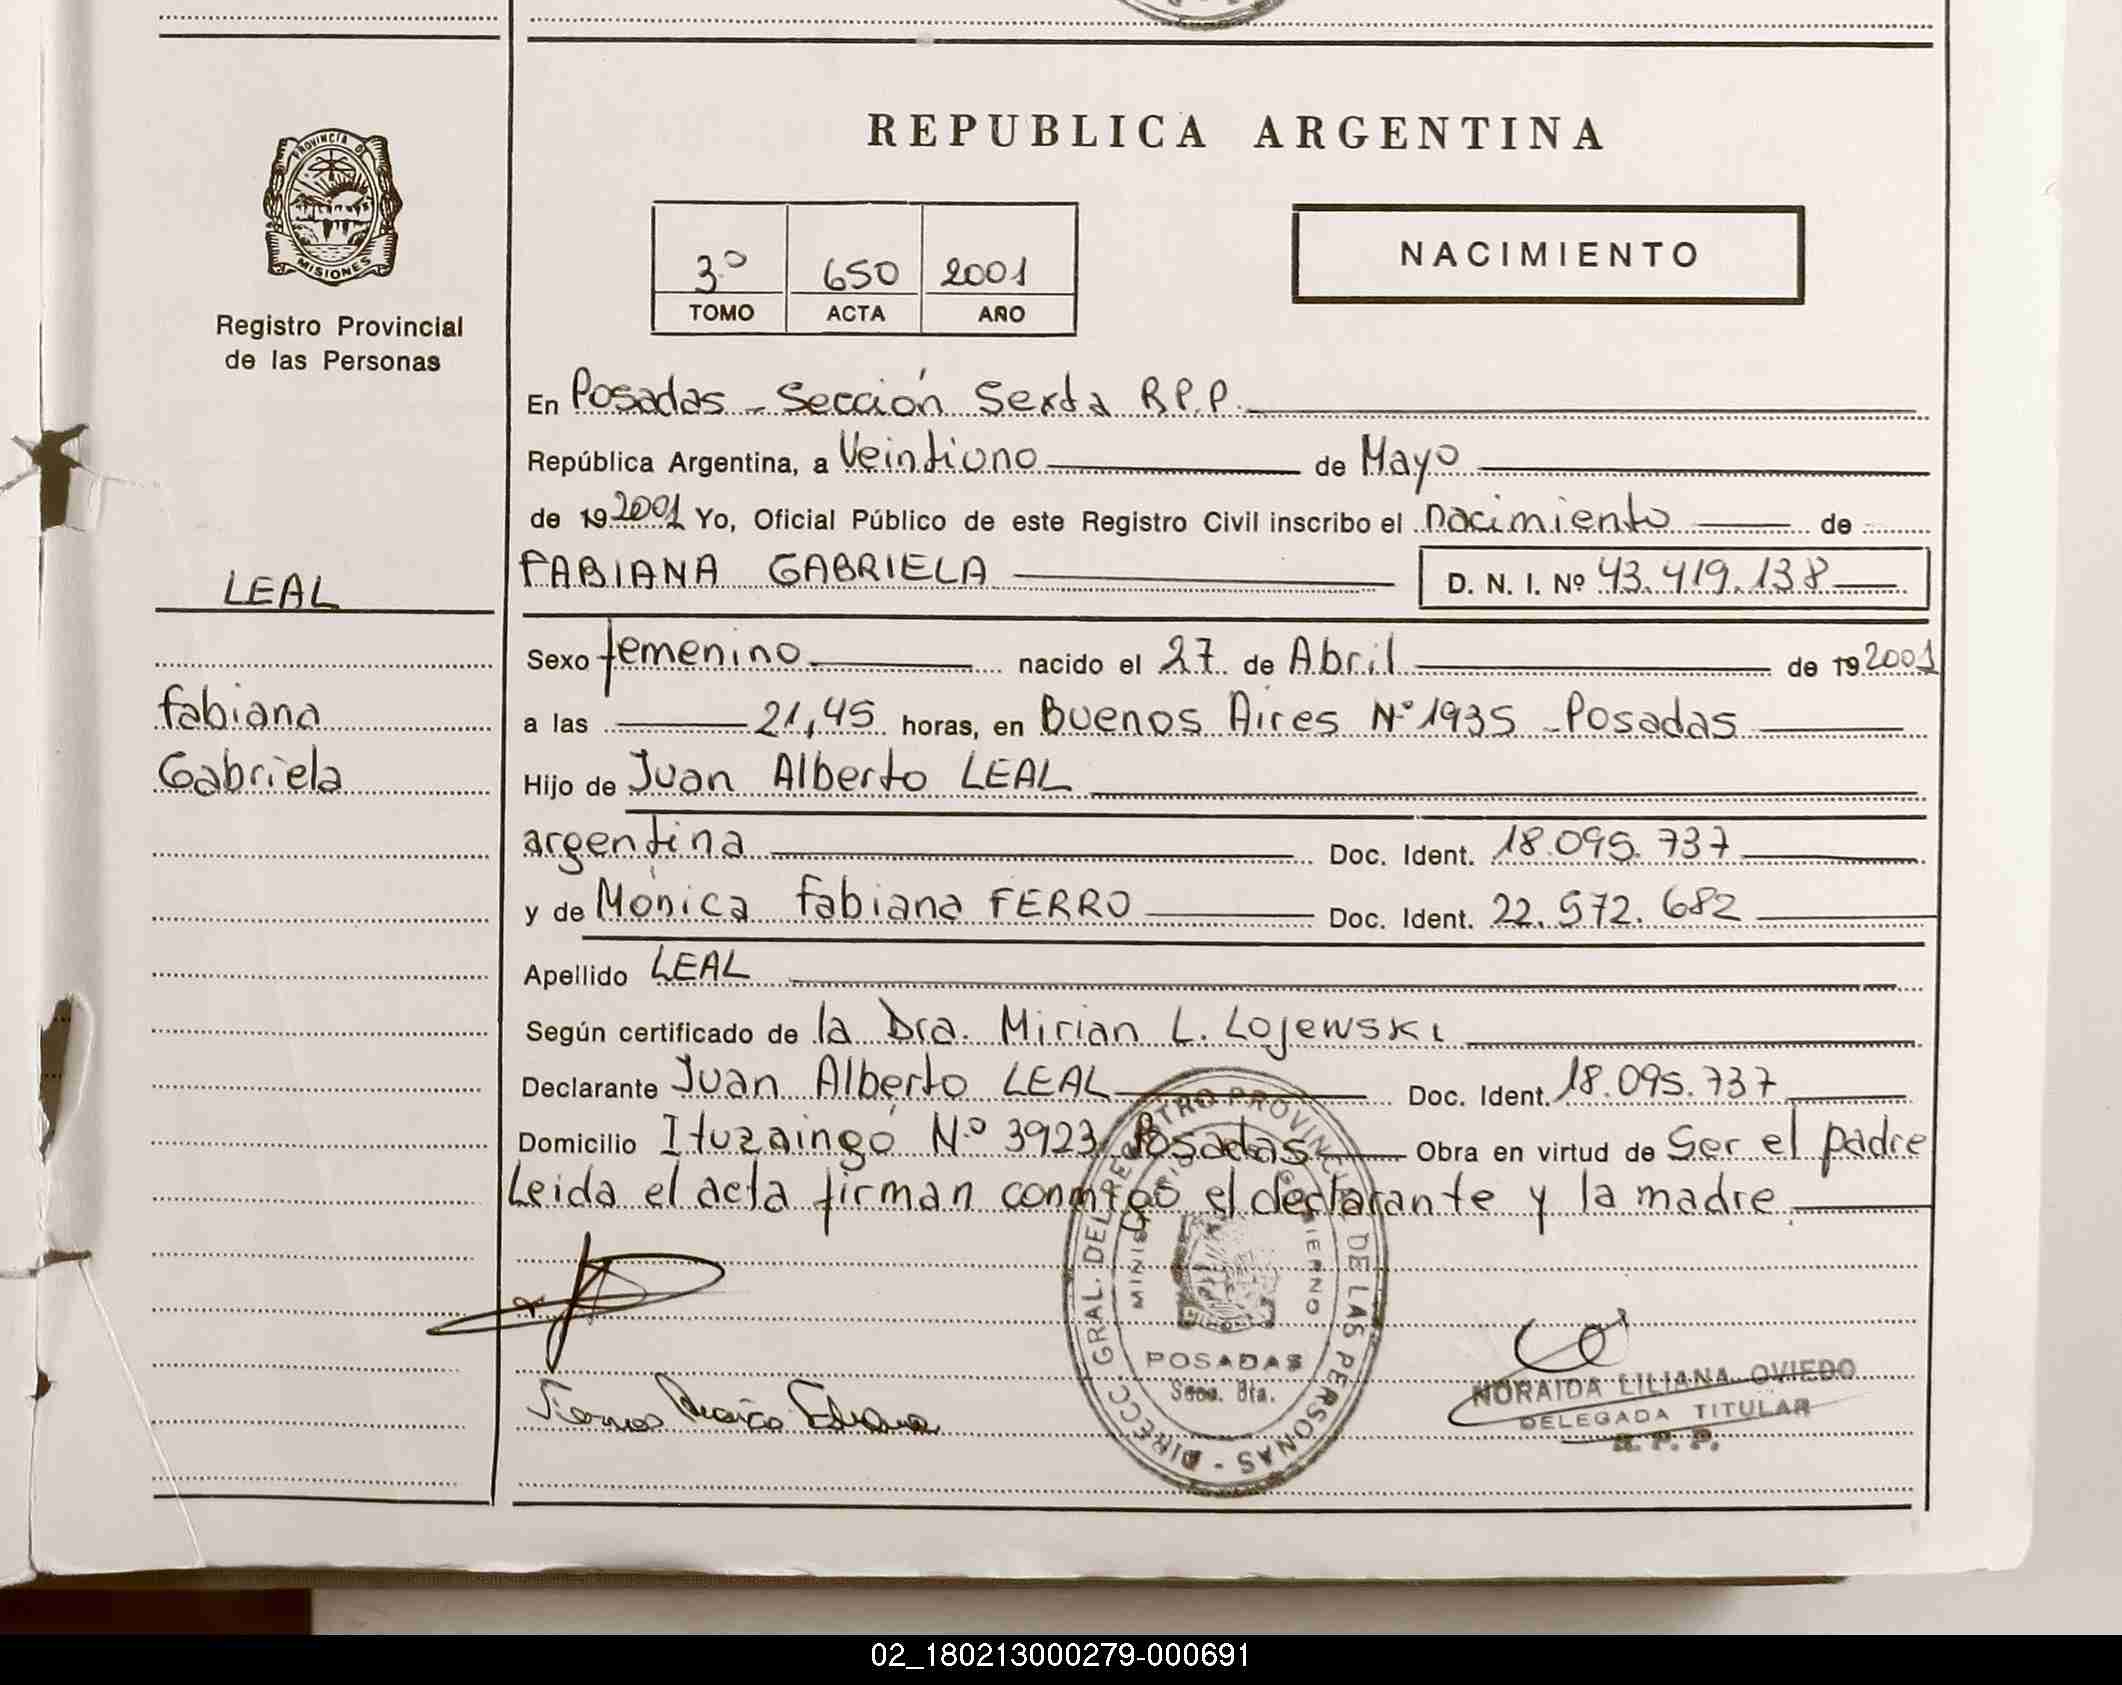 REPUBLICA ARGENTINA
PROVINCIA DE
MISIONES
Registro Provincial
de las Personas
3º 650 2001
TOMO ACTA AÑO
NACIMIENTO
En Posadas - Sección Sexta R.P.P.
República Argentina, a Veintiuno de Mayo
de 19 2001 Yo, Oficial Público de este Registro Civil inscribo el nacimiento de
FABIANA GABRIELA D. N. I. Nº 43.419.138
LEAL
Sexo femenino nacido el 27 de Abril de 19 2001
fabiana
a las 21,45 horas, en Buenos Aires Nº 1935 - Posadas
Gabriela
Hijo de Juan Alberto LEAL
argentina Doc. Ident. 18.095.737
y de Mónica fabiana FERRO Doc. Ident. 22.572.682
Apellido LEAL
Según certificado de la Dra. Mirian L. Lojewski
Declarante Juan Alberto LEAL Doc. Ident. 18.095.737
Domicilio Ituzaingó Nº 3923 Posadas Obra en virtud de Ser el padre
Leida el acta firman conmigo el declarante y la madre.
DIRECC GRAL. DEL REGISTRO PROVINCIAL DE LAS PERSONAS -
MINISTERIO GOBIERNO
POSADAS
Secc. 6ta.
NORAIDA LILIANA OVIEDO
DELEGADA TITULAR
R. P. P.
02_180213000279-000691